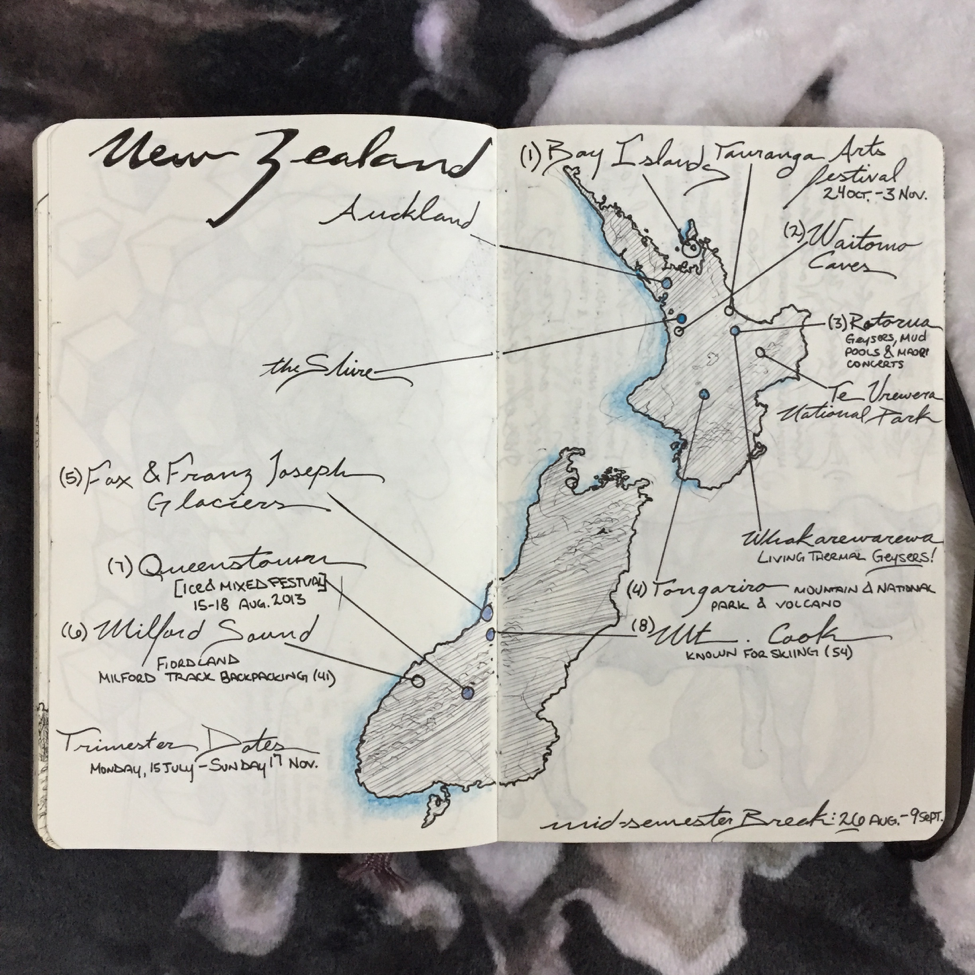 New Zealand
Auckland
the Shire
(5) Fox & Franz Joseph
Glaciers
(7) Queenstown
[Iced Mixed Festival]
15-18 Aug. 2013
(6) Milford Sound
Fiordland
Milford Track Backpacking (41)
Trimester Dates
Monday, 15 July - Sunday 17 Nov.
(1) Bay Islands
Tauranga Arts
festival
24 Oct. - 3 Nov.
(2) Waitomo
Caves
(3) Rotorua
Geysers, Mud
Pools & Maori
Concerts
Te Urewera
National Park
Whakarewarewa
Living Thermal Geysers!
(4) Tongariro Mountain & National
Park & Volcano
(8) Mt. Cook
Known for skiing (54)
mid-semester Break: 26 Aug. - 9 Sept.